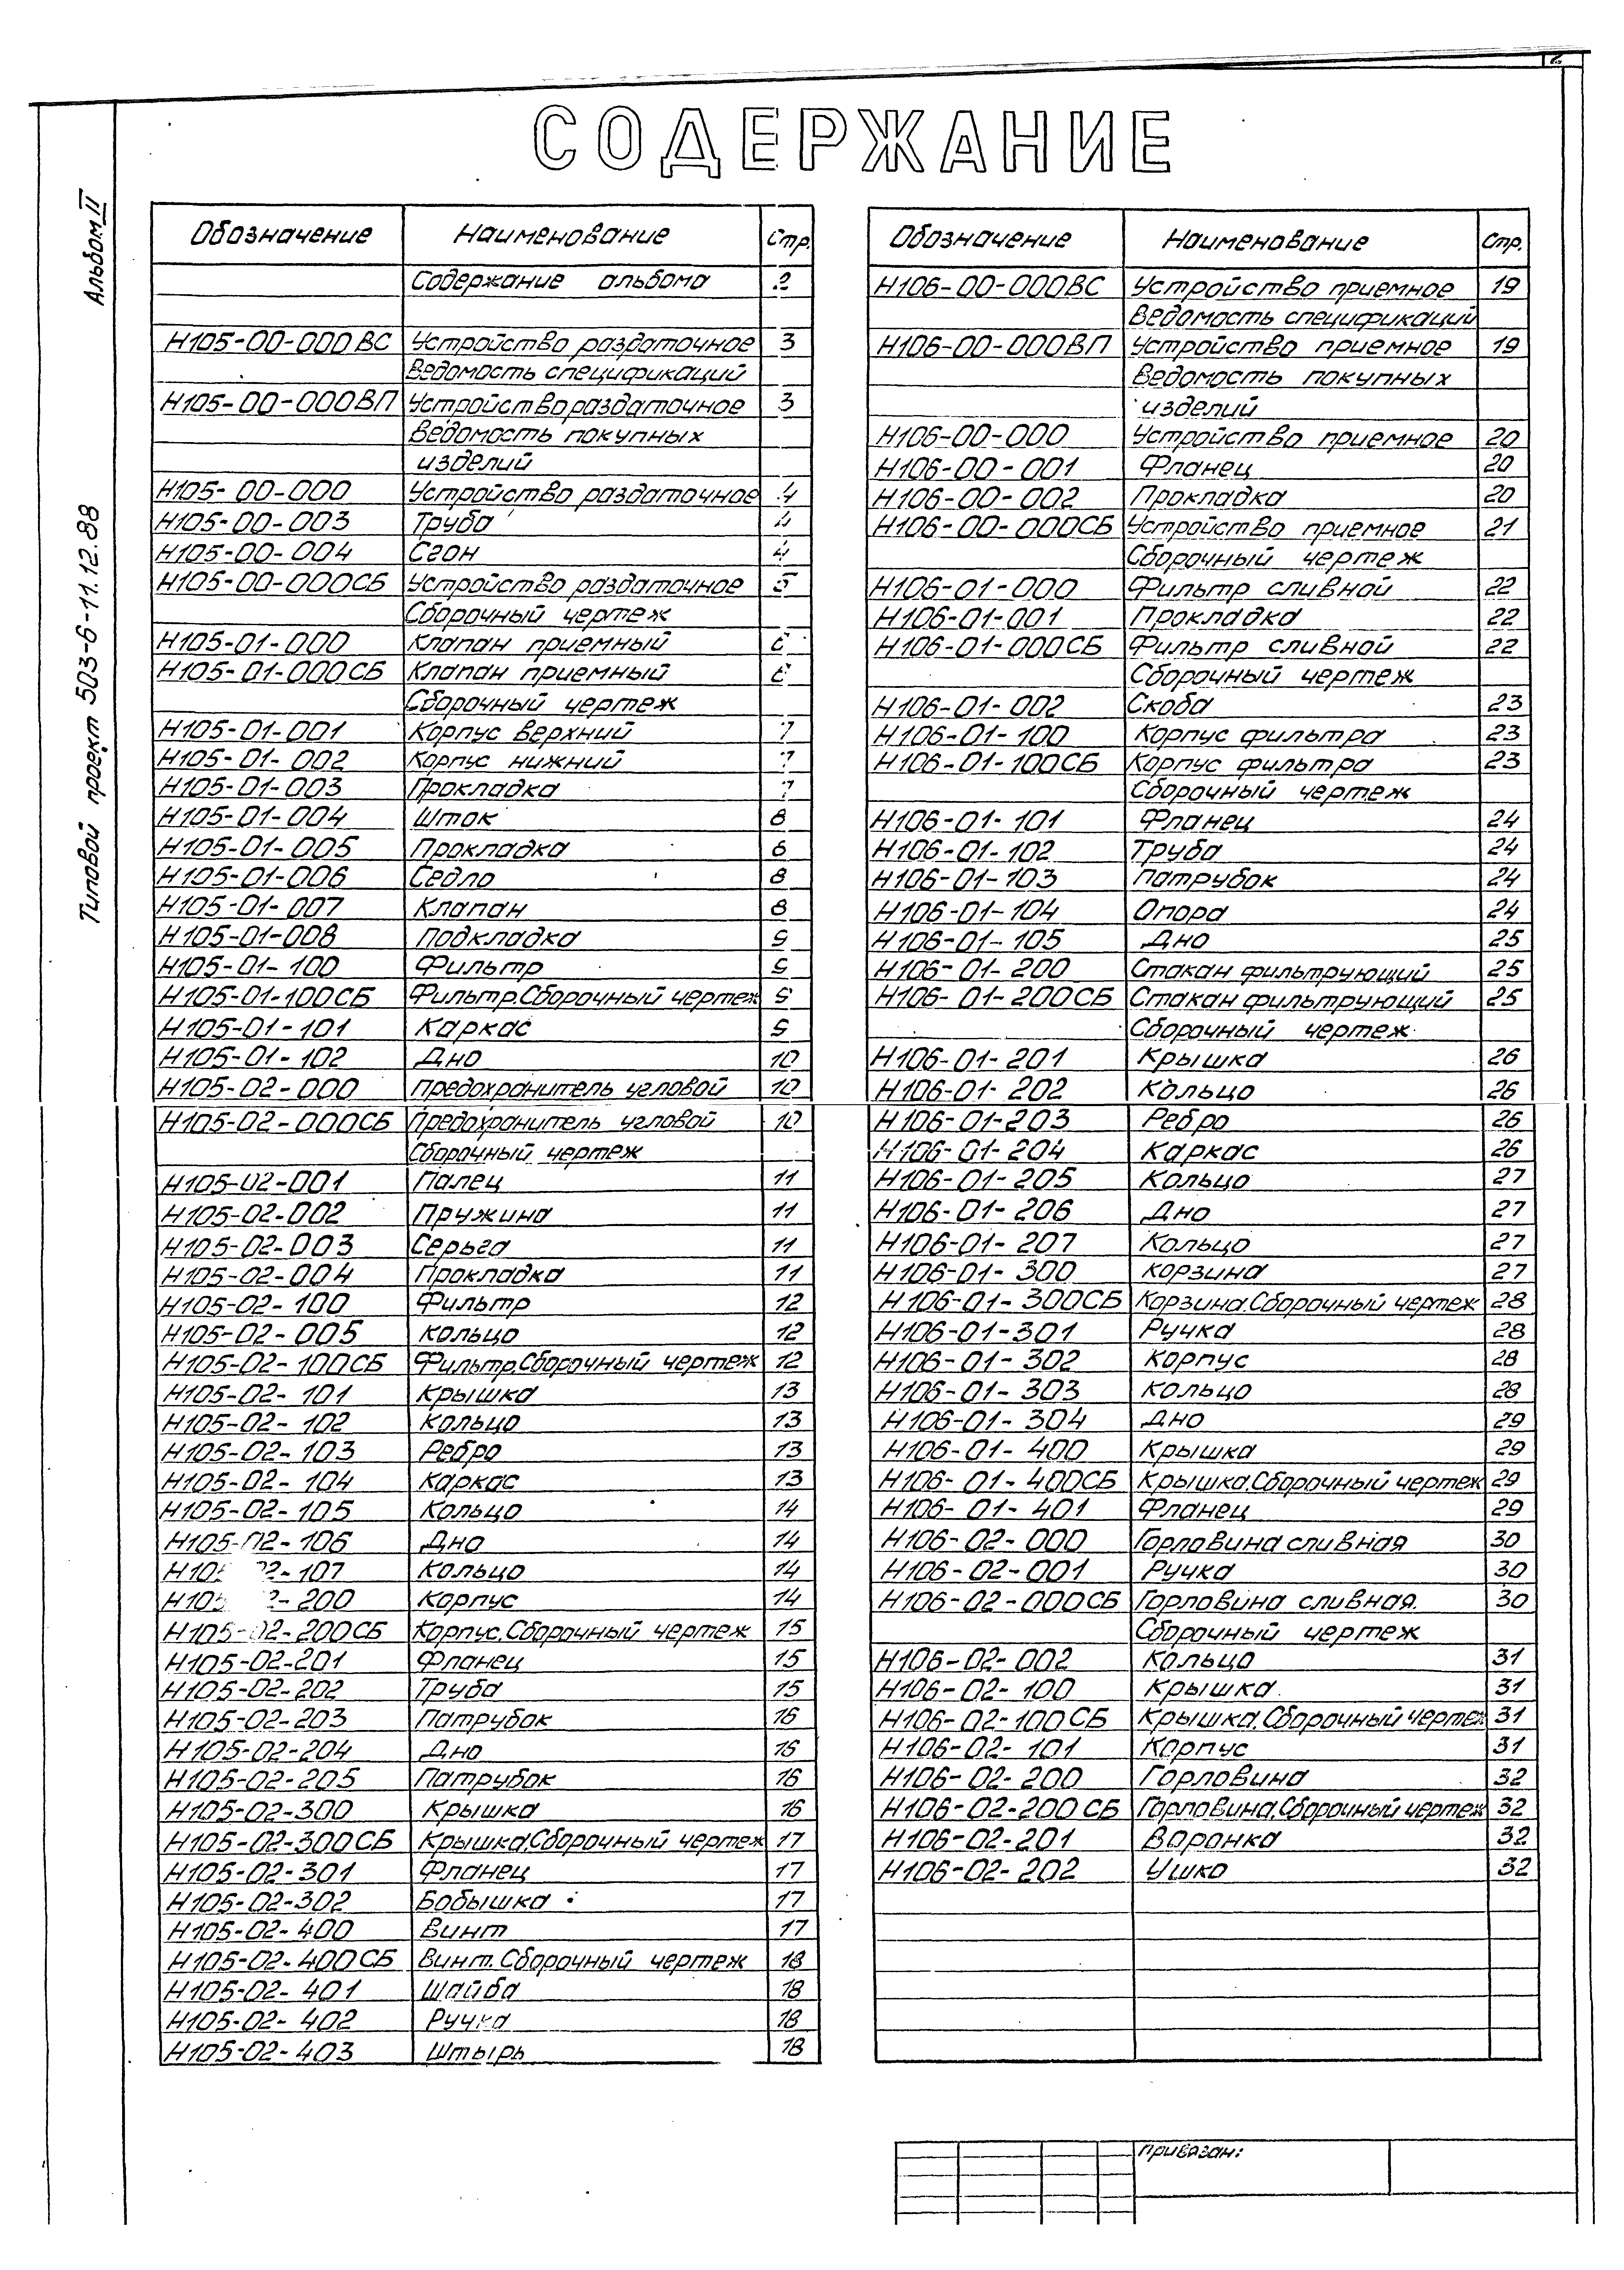 2
СОДЕРЖАНИЕ
Альбом II
Типовой проект 503-6-11.12.88
Обозначение Наименование Стр.
Содержание альбома 2
Н105-00-000ВС Устройство раздаточное 3
Ведомость спецификаций
Н105-00-000ВП Устройство раздаточное 3
Ведомость покупных
изделий
Н105-00-000 Устройство раздаточное 4
Н105-00-003 Труба 4
Н105-00-004 Сгон 4
Н105-00-000СБ Устройство раздаточное 5
Сборочный чертеж
Н105-01-000 Клапан приемный 6
Н105-01-000СБ Клапан приемный 6
Сборочный чертеж
Н105-01-001 Корпус верхний 7
Н105-01-002 Корпус нижний 7
Н105-01-003 Прокладка 7
Н105-01-004 Шток 8
Н105-01-005 Прокладка 8
Н105-01-006 Седло 8
Н105-01-007 Клапан 8
Н105-01-008 Подкладка 9
Н105-01-100 Фильтр 9
Н105-01-100СБ Фильтр.Сборочный чертеж 9
Н105-01-101 Каркас 9
Н105-01-102 Дно 10
Н105-02-000 Предохранитель угловой 10
Н105-02-000СБ Предохранитель угловой 10
Сборочный чертеж
Н105-02-001 Палец 11
Н105-02-002 Пружина 11
Н105-02-003 Серьга 11
Н105-02-004 Прокладка 11
Н105-02-100 Фильтр 12
Н105-02-005 Кольцо 12
Н105-02-100СБ Фильтр.Сборочный чертеж 12
Н105-02-101 Крышка 13
Н105-02-102 Кольцо 13
Н105-02-103 Ребро 13
Н105-02-104 Каркас 13
Н105-02-105 Кольцо 14
Н105-02-106 Дно 14
Н105-02-107 Кольцо 14
Н105-02-200 Корпус 14
Н105-02-200СБ Корпус.Сборочный чертеж 15
Н105-02-201 Фланец 15
Н105-02-202 Труба 15
Н105-02-203 Патрубок 16
Н105-02-204 Дно 16
Н105-02-205 Патрубок 16
Н105-02-300 Крышка 16
Н105-02-300СБ Крышка.Сборочный чертеж 17
Н105-02-301 Фланец 17
Н105-02-302 Бобышка 17
Н105-02-400 Винт 17
Н105-02-400СБ Винт.Сборочный чертеж 18
Н105-02-401 Шайба 18
Н105-02-402 Ручка 18
Н105-02-403 Штырь 18
Обозначение Наименование Стр.
Н106-00-000ВС Устройство приемное 19
Ведомость спецификаций
Н106-00-000ВП Устройство приемное 19
Ведомость покупных
изделий
Н106-00-000 Устройство приемное 20
Н106-00-001 Фланец 20
Н106-00-002 Прокладка 20
Н106-00-000СБ Устройство приемное 21
Сборочный чертеж
Н106-01-000 Фильтр сливной 22
Н106-01-001 Прокладка 22
Н106-01-000СБ Фильтр сливной 22
Сборочный чертеж
Н106-01-002 Скоба 23
Н106-01-100 Корпус фильтра 23
Н106-01-100СБ Корпус фильтра 23
Сборочный чертеж
Н106-01-101 Фланец 24
Н106-01-102 Труба 24
Н106-01-103 Патрубок 24
Н106-01-104 Опора 24
Н106-01-105 Дно 25
Н106-01-200 Стакан фильтрующий 25
Н106-01-200СБ Стакан фильтрующий 25
Сборочный чертеж
Н106-01-201 Крышка 26
Н106-01-202 Кольцо 26
Н106-01-203 Ребро 26
Н106-01-204 Каркас 26
Н106-01-205 Кольцо 27
Н106-01-206 Дно 27
Н106-01-207 Кольцо 27
Н106-01-300 Корзина 27
Н106-01-300СБ Корзина.Сборочный чертеж 28
Н106-01-301 Ручка 28
Н106-01-302 Корпус 28
Н106-01-303 Кольцо 28
Н106-01-304 Дно 29
Н106-01-400 Крышка 29
Н106-01-400СБ Крышка.Сборочный чертеж 29
Н106-01-401 Фланец 29
Н106-02-000 Горловина сливная 30
Н106-02-001 Ручка 30
Н106-02-000СБ Горловина сливная. 30
Сборочный чертеж
Н106-02-002 Кольцо 31
Н106-02-100 Крышка 31
Н106-02-100СБ Крышка.Сборочный чертеж 31
Н106-02-101 Корпус 31
Н106-02-200 Горловина 32
Н106-02-200СБ Горловина.Сборочный чертеж 32
Н106-02-201 Воронка 32
Н106-02-202 Ушко 32
Привязан: